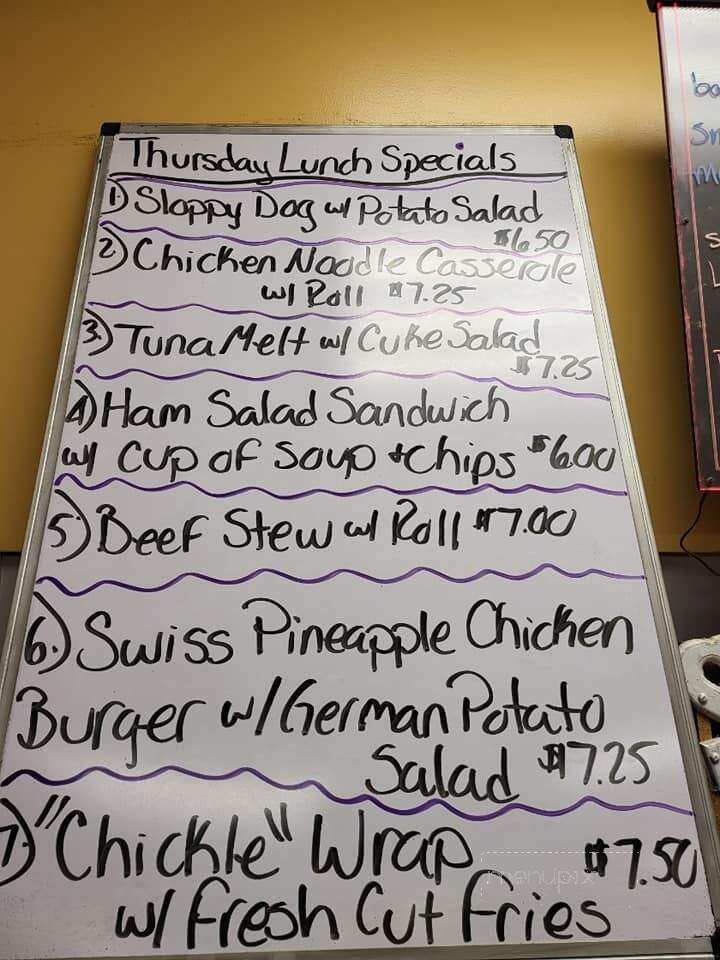 Thursday Lunch Specials
1) Sloppy Dog w/ Potato Salad
$6.50
2) Chicken Noodle Casserole
w/ Roll $7.25
3.) Tuna Melt w/ Cuke Salad
$7.25
4) Ham Salad Sandwich
w/ Cup of Soup + Chips $6.00
5.) Beef Stew w/ Roll $7.00
6.) Swiss Pineapple Chicken
Burger w/ German Potato
Salad $7.25
7.) "Chickle" Wrap $7.50
w/ Fresh Cut Fries
menupix